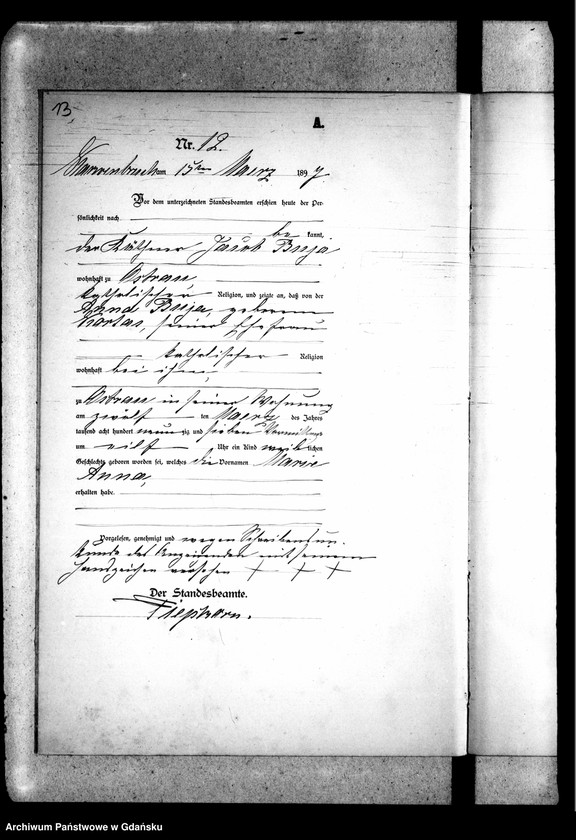 13,
A.
Nr. 12.
am 15ten Maerz 1897
Vor dem unterzeichneten Standesbeamten erschien heute der Per-
sönlichkeit nach
be kannt,
der Käthner Jacob Buja
wohnhaft zu Ostrau
katholischer Religion, und zeigte an, daß von der
Anna Buja, geborenen
seiner Ehefrau
katholischer Religion
wohnhaft bei ihm,
zu Ostrau in seiner Wohnung
am zwölf ten Maerz des Jahres
tausend acht hundert neun zig und sieben Vormittags
um eilf Uhr ein Kind weib lichen
Geschlechts geboren worden sei, welches die Vornamen Marie
Anna,
erhalten habe.
Vorgelesen, genehmigt und wegen Schreibensun-
kunde des Anzeigenden mit seinem
Handzeichen versehen + + +
Der Standesbeamte.
Archiwum Państwowe w Gdańsku